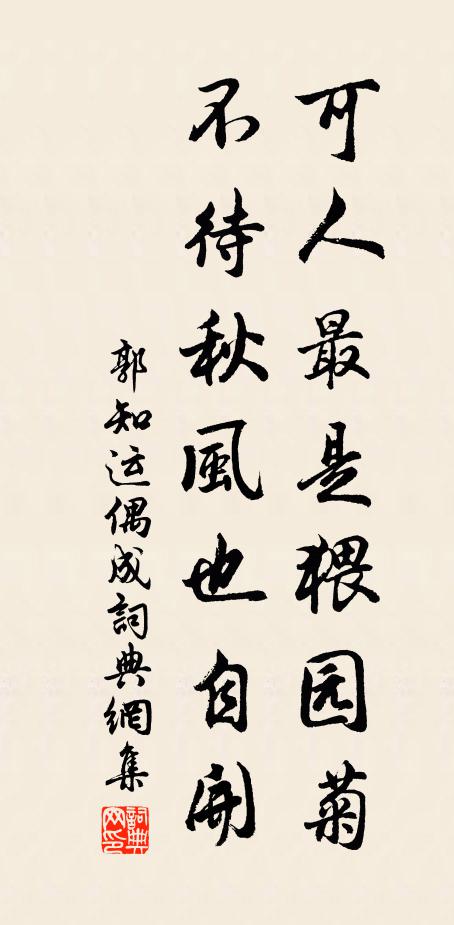 可人最是猥园菊
不待秋風也自開
郭知运偶成詞典網集
詞典網印